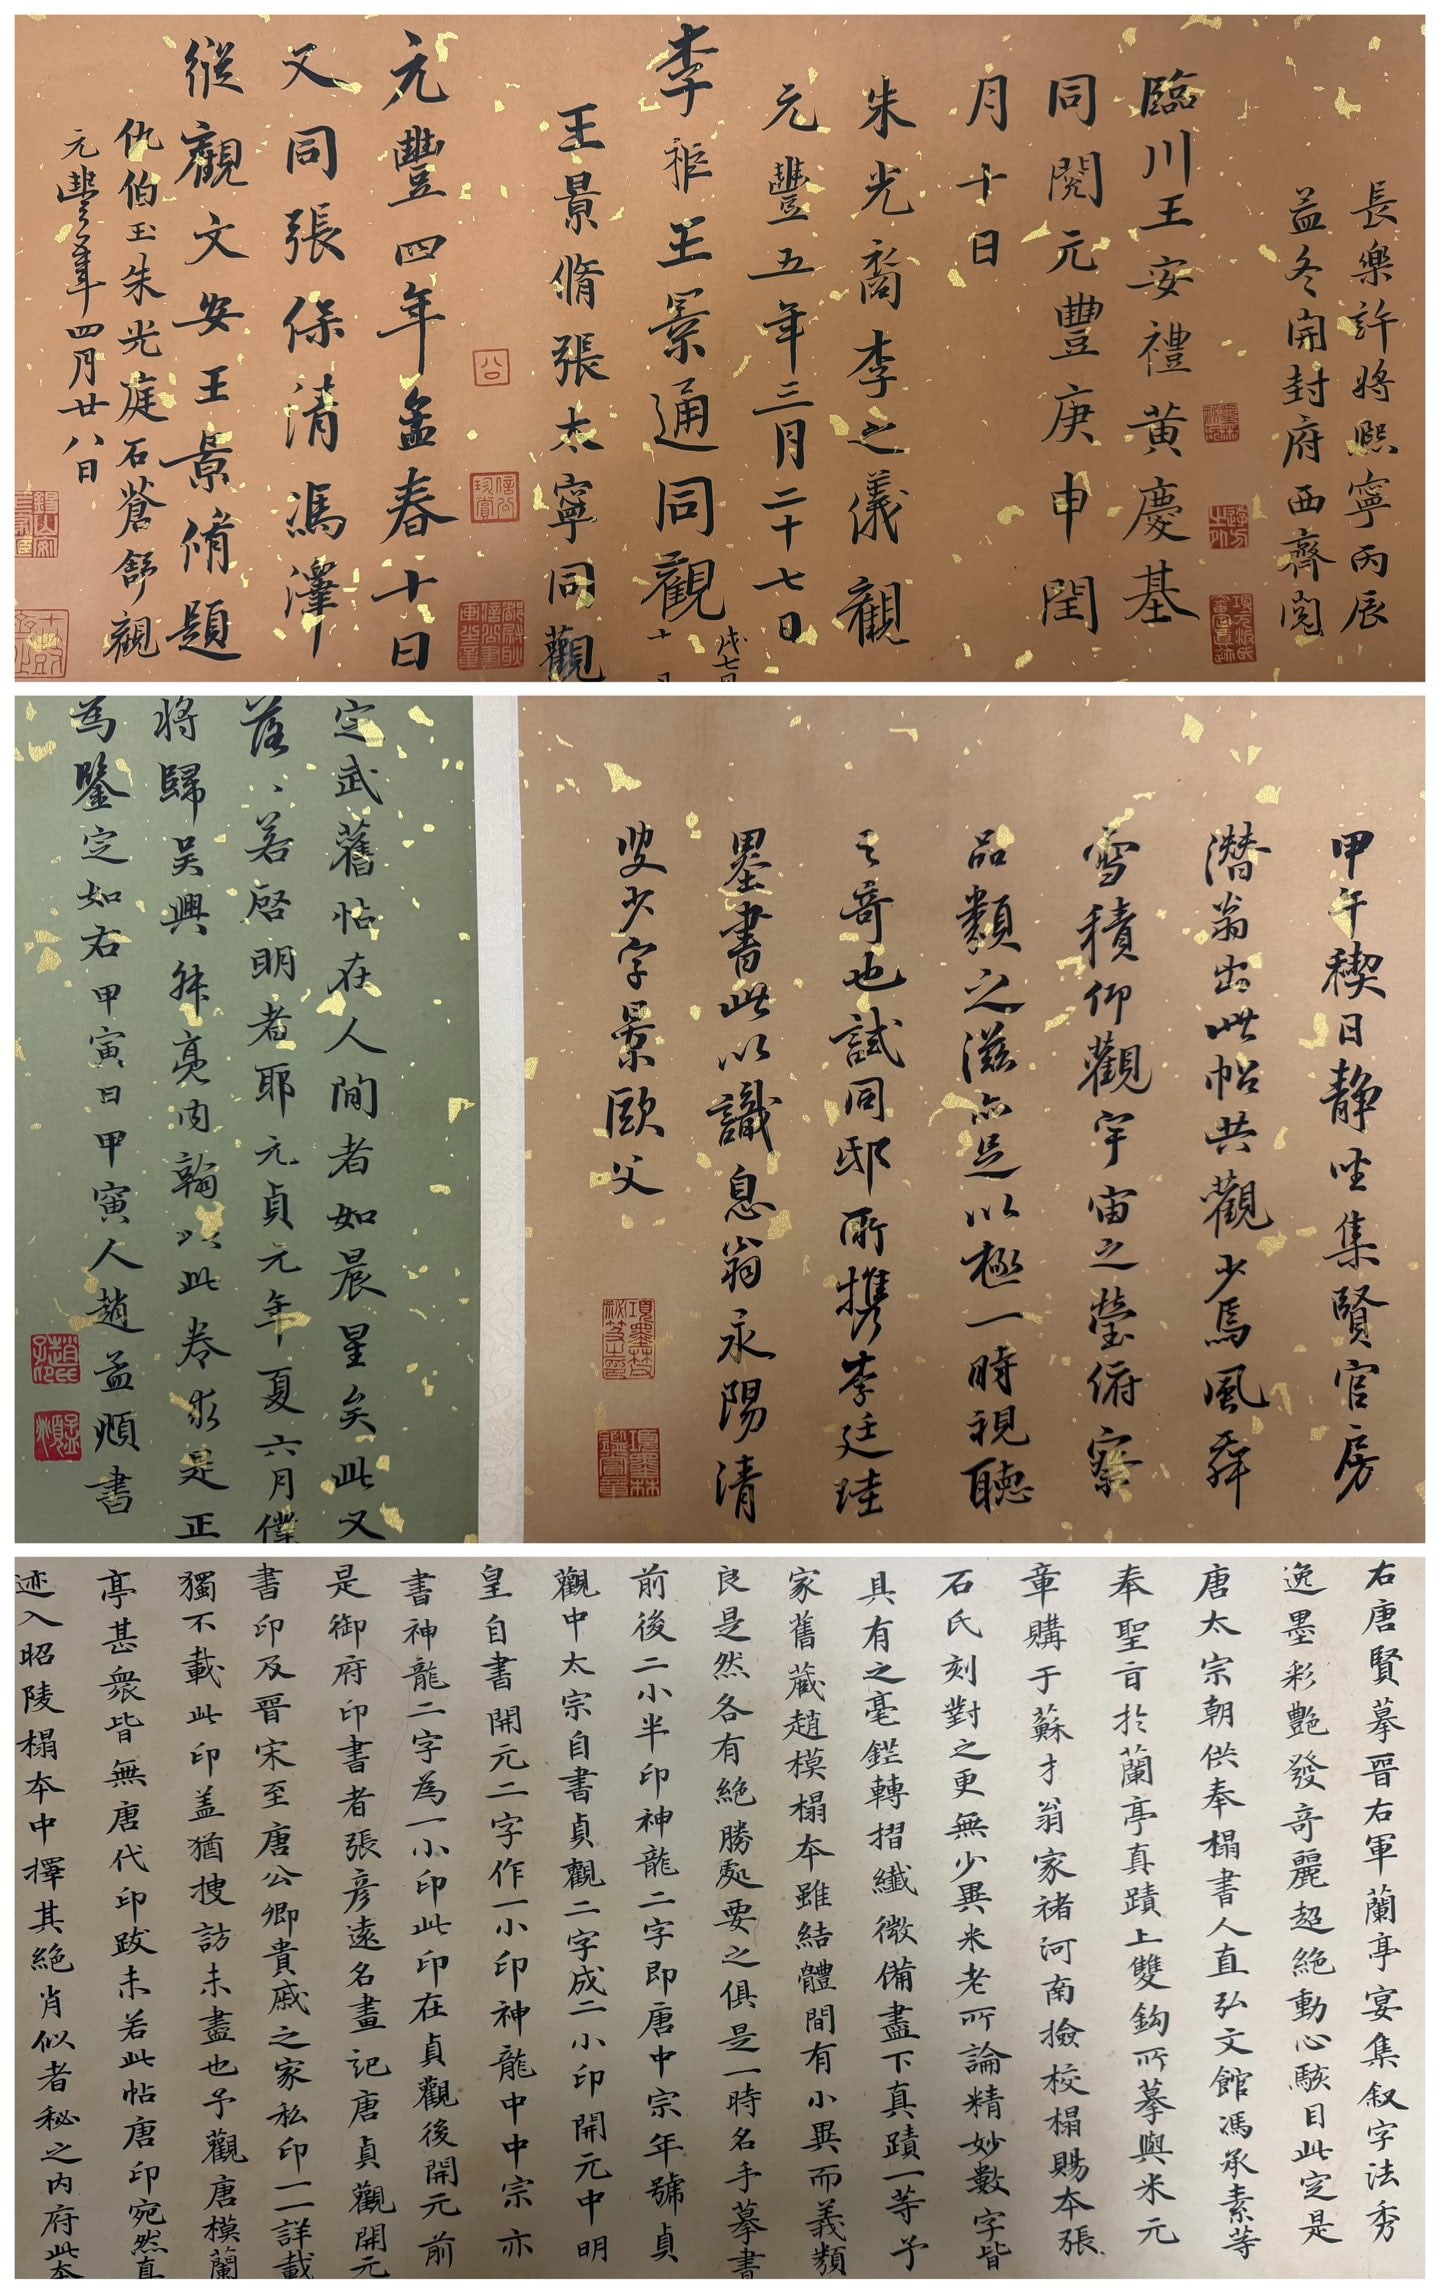 長樂許將熙寧丙辰
益冬開封府西齊閱
臨川王安禮黃慶基
同閱元豐庚申閏
月十日
朱光裔李之儀觀
元豐五年三月二十七日
李秬王景通同觀
戊七月
十月
王景脩張太寧同觀
元豐四年孟春十日
又同張保清馮澤
縱觀文安王景脩題
仇伯玉朱光庭石蒼舒觀
元豐年四月廿八日
甲午稧日靜坐集賢官房
潛翁出此帖共觀少焉風舞
雪積仰觀宇宙之瑩俯察
品類之滋亦足以極一時視聽
之奇也試同邸所攜李廷珪
墨書此以識息翁永陽清
叟少字景歐父
定武舊帖在人間者如晨星矣此又
落、若啓明者耶元貞元年夏六月僕
將歸吳興舜亮內翰以此卷求是正
為鑒定如右甲寅日甲寅人趙孟頫書
右唐賢摹晉右軍蘭亭宴集叙字法秀
逸墨彩艷發奇麗超絕動心駭目此定是
唐太宗朝供奉榻書人直弘文館馮承素等
奉聖旨於蘭亭真蹟上雙鈎所摹與米元
章購于蘇才翁家褚河南撿校榻賜本張
石氏刻對之更無少異米老所論精妙數字皆
具有之毫鋩轉摺纖微備盡下真蹟一等予
家舊藏趙模榻本雖結體間有小異而義類
良是然各有絕勝處要之俱是一時名手摹書
前後二小半印神龍二字即唐中宗年號貞
觀中太宗自書貞觀二字成二小印開元中明
皇自書開元二字作一小印神龍中中宗亦
書神龍二字為一小印此印在貞觀後開元前
是御府印書者張彦遠名畫記唐貞觀開元
書印及晉宋至唐公卿貴戚之家私印一一詳載
獨不載此印盖猶搜訪未盡也予觀唐模蘭
亭甚衆皆無唐代印跋未若此帖唐印宛然真
迹入昭陵榻本中擇其絕肖似者秘之內府此本